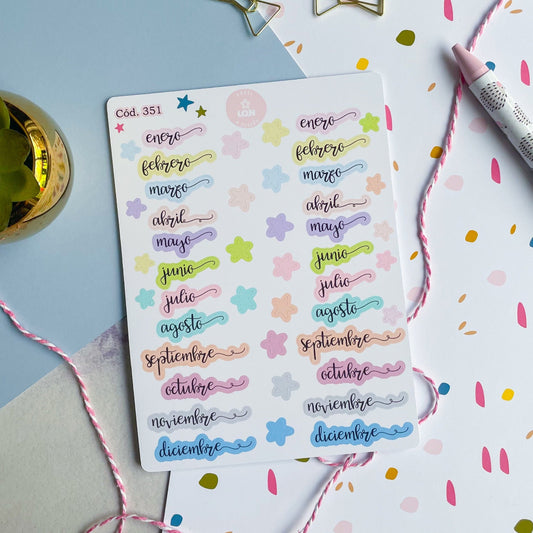 Cód. 351
LQN
enero enero
febrero febrero
marzo marzo
abril abril
mayo mayo
junio junio
julio julio
agosto agosto
septiembre septiembre
octubre octubre
noviembre noviembre
diciembre diciembre